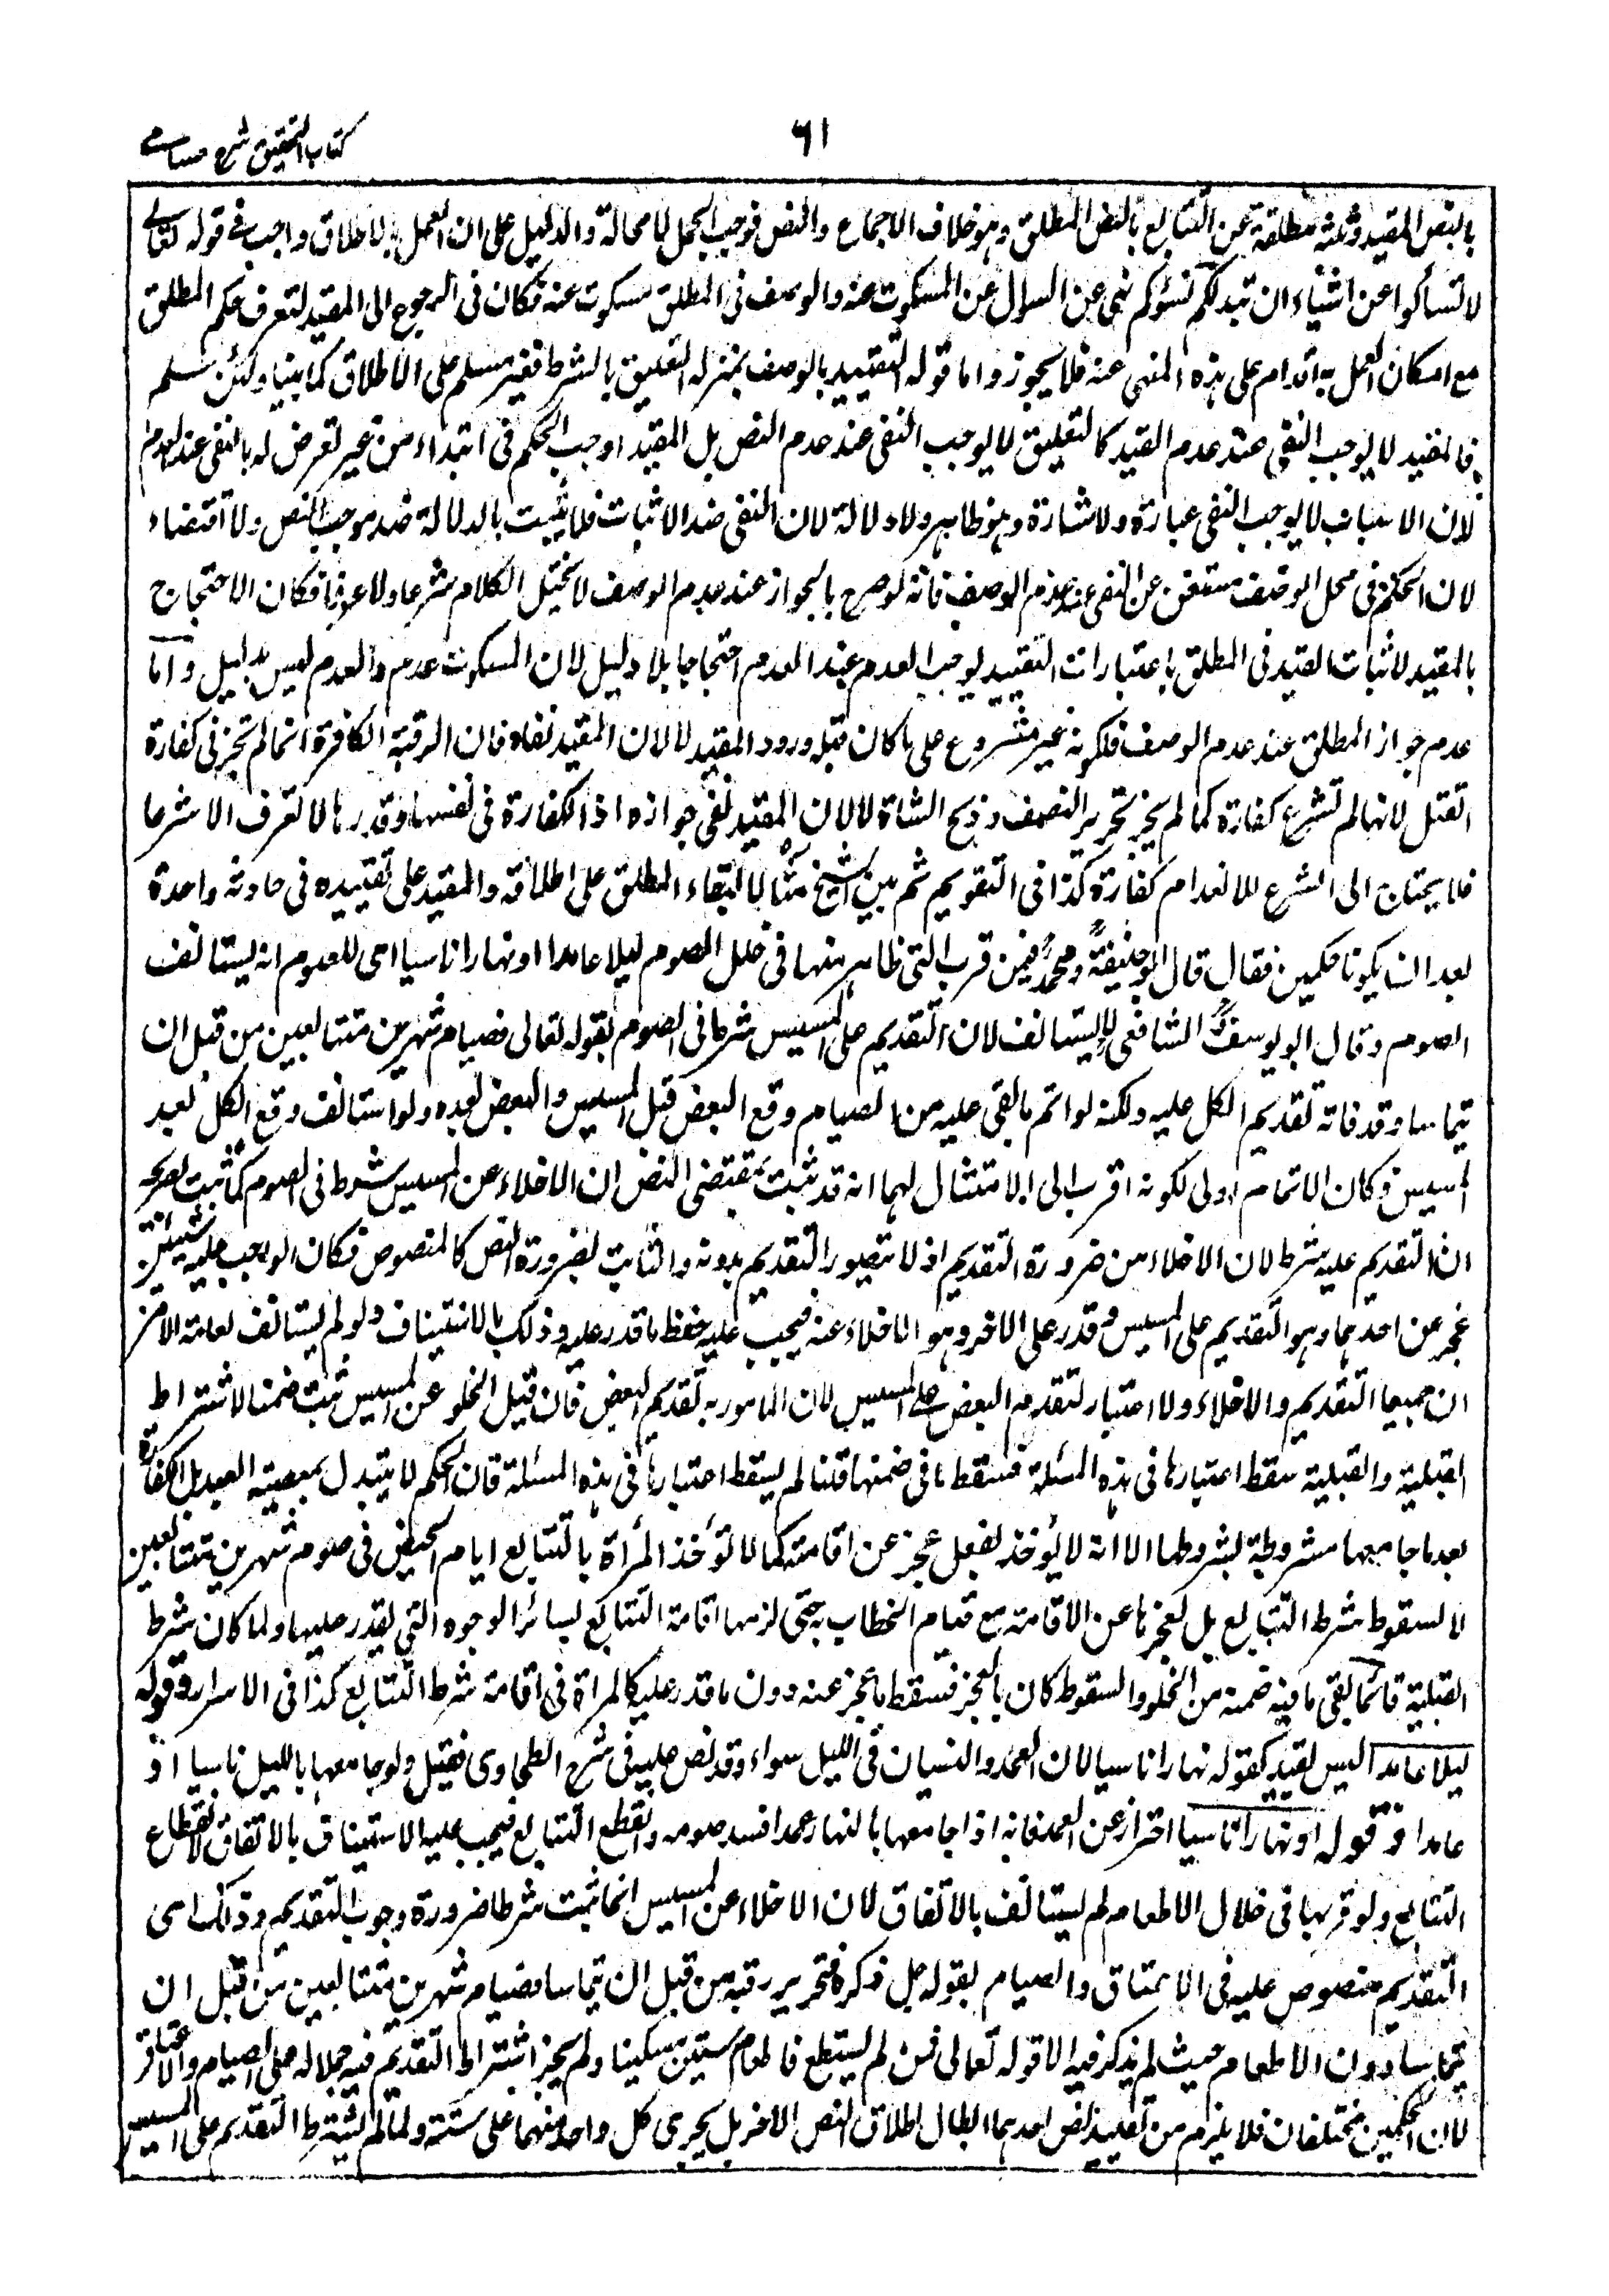 كتاب التحقيق شرح حسامي
٦١
بالنص المقيد وثلثه مطلقة عن التتابع بالنص المطلق وهو خلاف الاجماع والنص فوجب الحمل لا محالة والدليل على ان العمل بالاطلاق واجب فى قوله تعالى
لا تسألوا عن اشياء ان تبد لكم تسؤكم نهى عن السوال عن المسكوت عنه والوصف فى المطلق مسكوت عنه فكان فى الرجوع الى المقيد لتعرف حكم المطلق
مع امكان العمل به اقدام على هذه المنهى عنه فلا يجوز واما قوله التقييد بالوصف بمنزلة التعليق بالشرط فغير مسلم على الاطلاق كما بينا ولئن سلم
فالمقيد لا يوجب النفى عند عدم القيد كالتعليق لا يوجب النفى عند عدم النص بل المقيد اوجب الحكم فى ابتداء من غير تعرض له بالنفى عند العدم
لان الاثبات لا يوجب النفى عبارة ولا اشارة وهو ظاهر ولا دلالة لان النفى ضد الاثبات فلا يثبت بالدلالة ضد موجب النص ولا اقتضاء
لان الحكم فى محل الوصف مستغن عن النفى عند عدم الوصف فانه لو صرح بالجواز عند عدم الوصف لا يختل الكلام شرعا ولا عرفا فكان الاحتجاج
بالمقيد لاثبات القيد فى المطلق باعتبار ان التقييد يوجب العدم عند العدم احتجاجا بلا دليل لان السكوت عدم والعدم ليس بدليل واما
عدم جواز المطلق عند عدم الوصف فلكونه غير مشروع على ما كان قبل ورود المقيد لا لان المقيد نفاه فان الرقبة الكافرة انما لم تجز فى كفارة
القتل لانها لم تشرع كفارة كما لم يجز تحرير النصف وذبح الشاة لا لان المقيد نفى جوازه اذ الكفارة فى نفسها وقدرها لا تعرف الا شرعا
فلا يحتاج الى الشرع للانعدام كفارة كذا فى التقويم ثم بين الشيخ مثالا لبقاء المطلق على اطلاقه والمقيد على تقييده فى حادثة واحدة
بعد ان يكونا حكمين فقال قال ابو حنيفة ومحمد فيمن قرب التى ظاهر منها فى خلل الصوم ليلا عامدا او نهارا ناسيا اى للصوم انه يستانف
الصوم وقال ابو يوسف والشافعى لا يستانف لان التقديم على المسيس شرط فى الصوم لقوله تعالى فصيام شهرين متتابعين من قبل ان
يتماسا وقد فاته تقديم الكل عليه ولكنه لو اتم ما بقى عليه من الصيام وقع البعض قبل المسيس والبعض بعده ولو استانف وقع الكل بعد
المسيس فكان الاتمام اولى لكونه اقرب الى الامتثال لهما انه قد ثبت بمقتضى النص ان الاخلاء عن المسيس شرط فى الصوم كما ثبت بصريحه
ان التقديم عليه شرط لان الاخلاء من ضرورة التقديم اذ لا يتصور التقديم بدونه والثابت بضرورة النص كالمنصوص فكان الواجب عليه شيئين
عجز عن احدهما وهو التقديم على المسيس وقدر على الاخر وهو الاخلاء عنه فيجب عليه حفظ ما قدر عليه وذلك بالاستيناف ولو لم يستانف لفاته الامران
جميعا التقديم والاخلاء ولا اعتبار لتقدم البعض على المسيس لان المامور به تقديم البعض فان قيل الخلو عن المسيس ثبت ضمنا لاشتراط
القبلية والقبلية سقط اعتبارها فى هذه المسئلة فسقط ما فى ضمنها قلنا لم يسقط اعتبارها فى هذه المسئلة فان الحكم لا يتبدل بمعصية العبد بل الكفارة
بعد ما جامعها مشروطة بشروطها الا انه لا يؤخذ بفعل عجز عن اقامته كما لا تؤخذ المرأة بالتتابع ايام الحيض فى صوم شهرين متتابعين
لا لسقوط شرط التتابع بل لعجزها عن الاقامة مع قيام الخطاب به حتى لزمها اقامة التتابع بسائر الوجوه التى يقدر عليها ولما كان شرط
القبلية قائما بقى ما فيه ضمنه من الخلو والسقوط كان بالعجز فسقط ما عجز عنه دون ما قدر عليه كالمرأة فى اقامة شرط التتابع كذا فى الاسرار وقوله
ليلا عامدا ليس بقيد كقوله نهارا ناسيا لان العمد والنسيان فى الليل سواء وقد نص عليه فى شرح الطحاوى فقيل ولو جامعها بالليل ناسيا او
عامدا وقوله او نهارا ناسيا احتراز عن العمد فانه اذا جامعها بالنهار عمدا فسد صومه وانقطع التتابع فيجب عليه الاستيناف بالاتفاق لانقطاع
التتابع ولو قربها فى خلال الاطعام لم يستانف بالاتفاق لان الاخلاء عن المسيس انما ثبت شرطا ضرورة وجوب التقديم وذلك اى
التقديم منصوص عليه فى الاعتاق والصيام بقوله جل ذكره فتحرير رقبة من قبل ان يتماسا فصيام شهرين متتابعين من قبل ان
يتماسا دون الاطعام حيث لم يذكر فيه الا قوله تعالى فمن لم يستطع فاطعام ستين مسكينا ولم يجز اشتراط التقديم فيه حملا له على الصيام والاعتاق
لان الحكمين مختلفان فلا يلزم من تقييد نص احدهما ابطال اطلاق النص الاخر بل يجرى كل واحد منهما على سننه ولما لم يشترط التقديم على المسيس